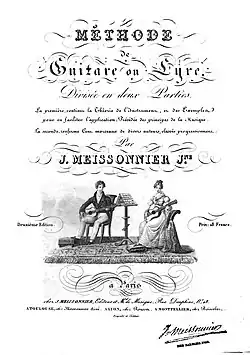 MÉTHODE
de
Guitare ou Lyre,
Divisée en deux Parties.
La première, contient la Théorie de l'Instrument, et des Exemples,
pour en faciliter l'application, Précédée des principes de la Musique.
La seconde, renferme Cinq. morceaux de divers auteurs, classés progressivement.
Par
J. MEISSONNIER Jne
Deuxième Edition.
Prix: 18 Francs.
à Paris
chez J. MEISSONNIER, Editeur et Md. de Musique, Rue Dauphine, No. 22.
A TOULOUSE, chez Meissonnier Ainé. A LYON, chez A MONTPELLIER, chez
J. Meissonnier